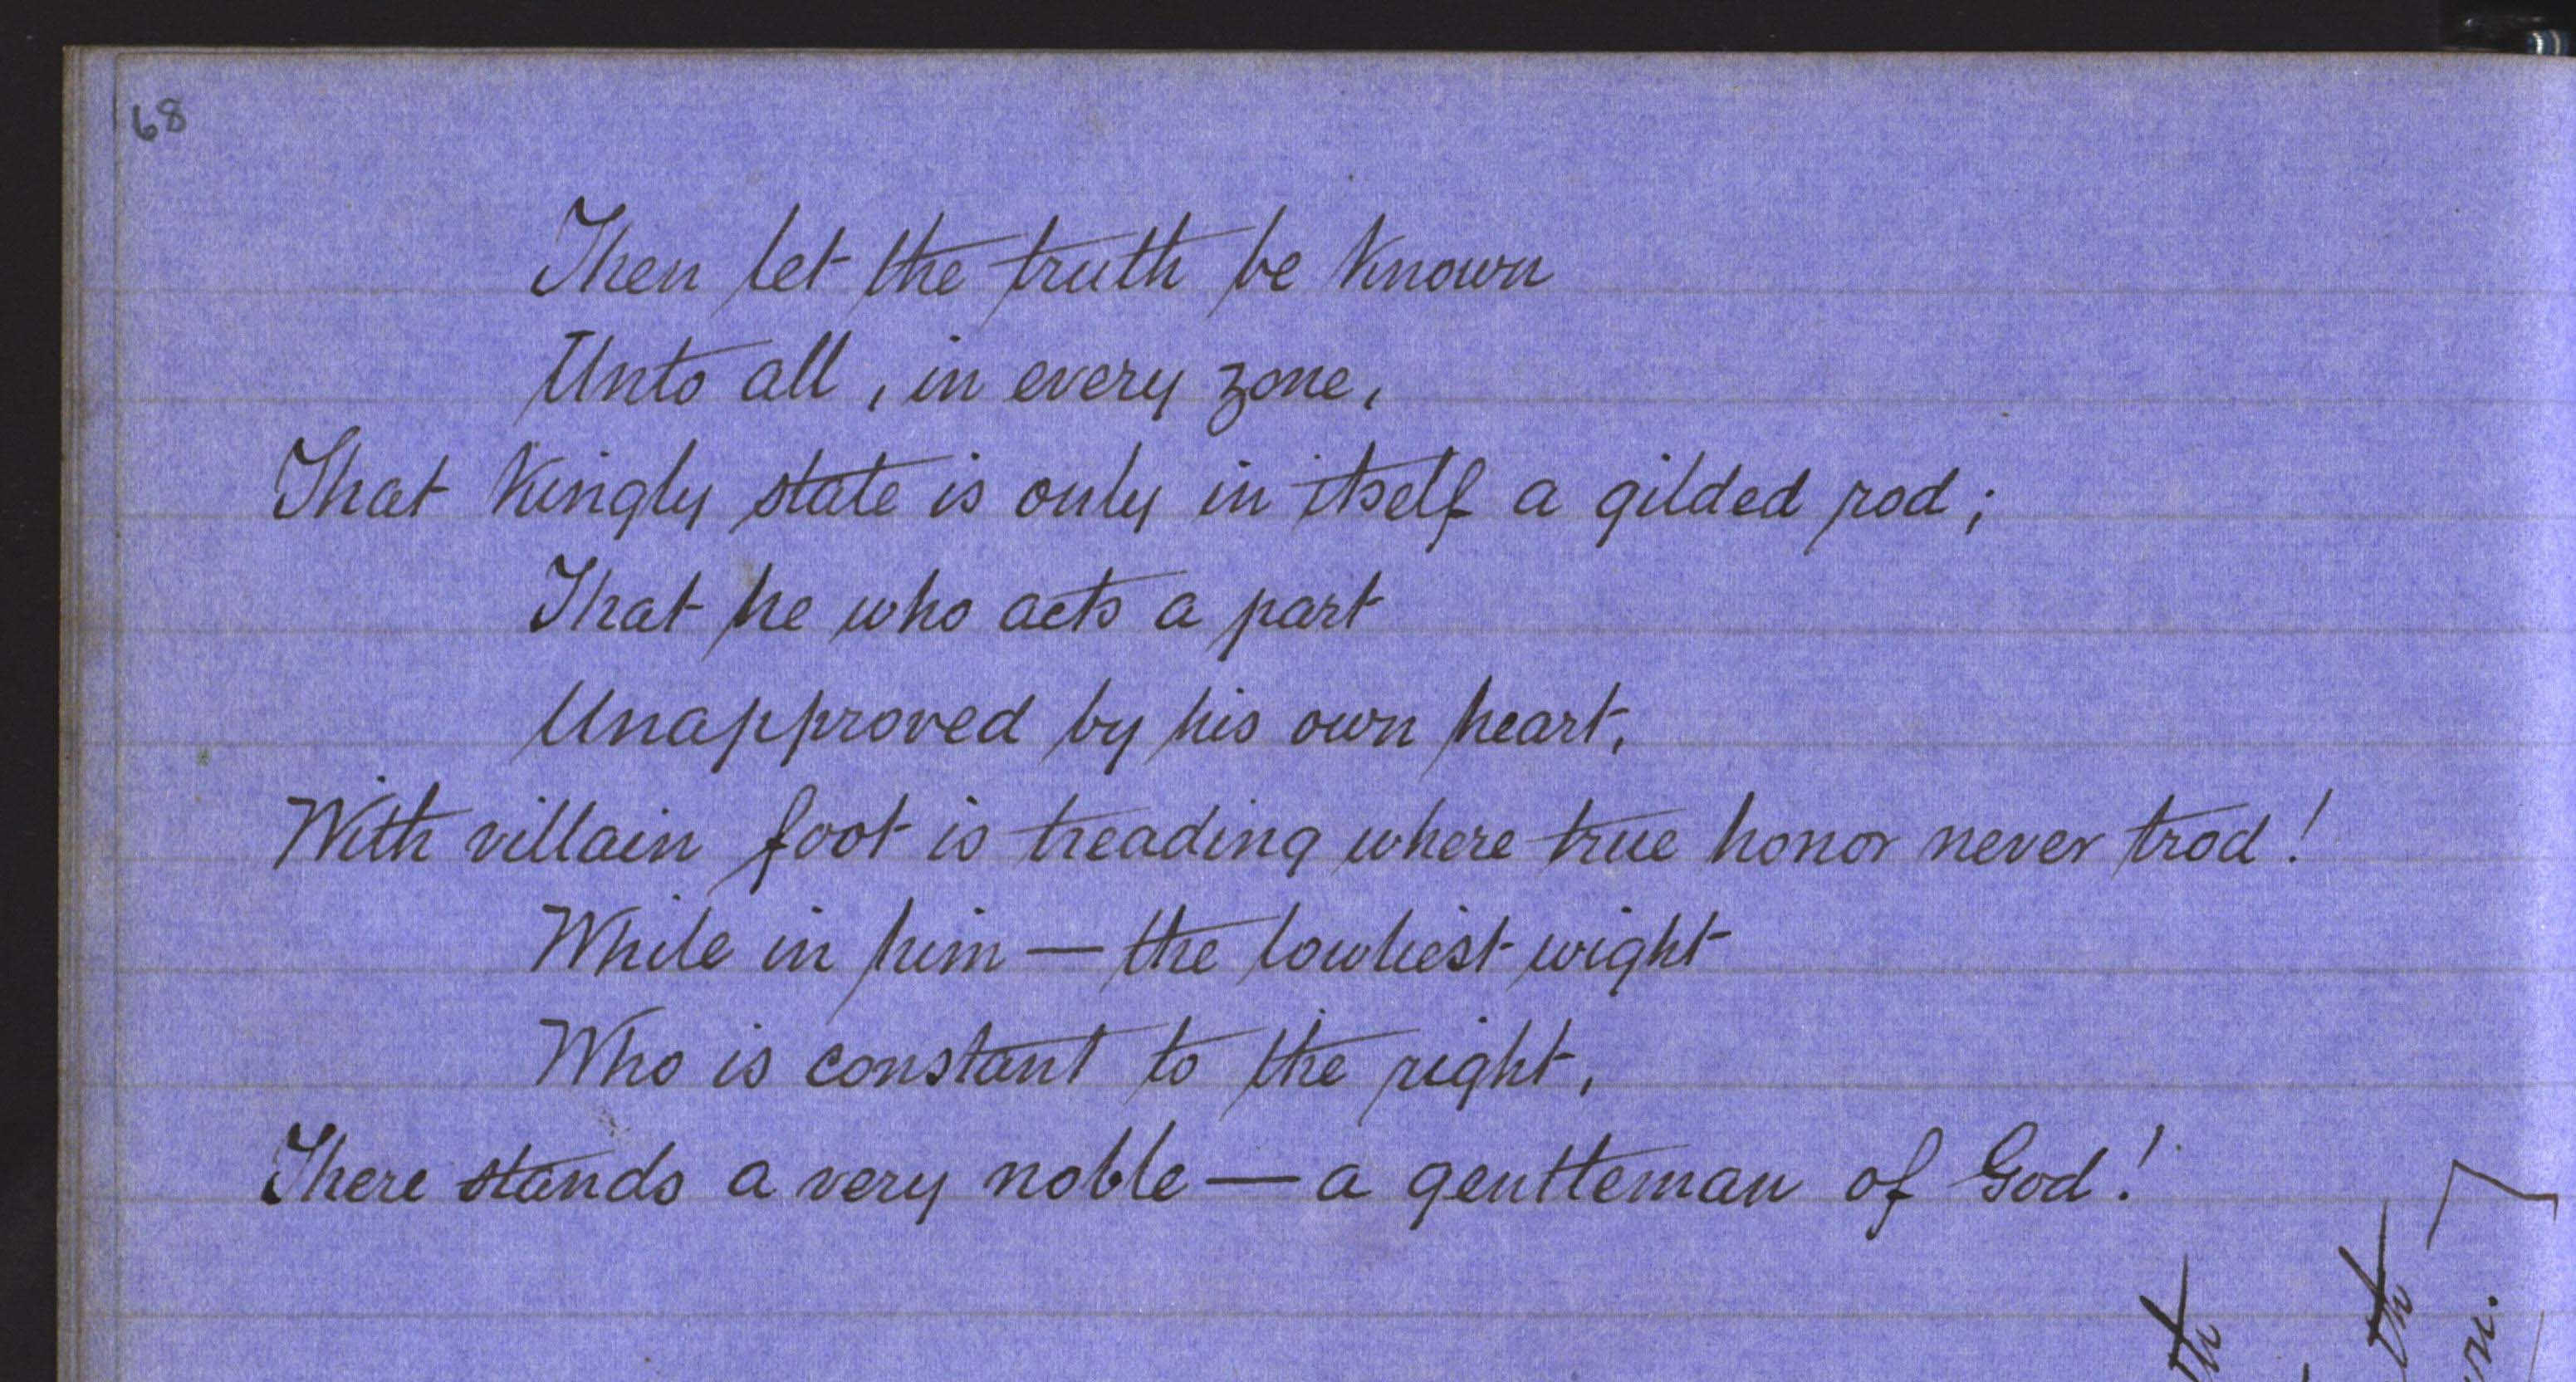 68
Then let the truth be known
Unto all, in every zone,
That Kingly state is only in itself a gilded rod;
That he who acts a part
Unapproved by his own heart,
With villain foot is treading where true honor never trod!
While in him — the lowliest wight
Who is constant to the right,
There stands a very noble — a gentleman of God!